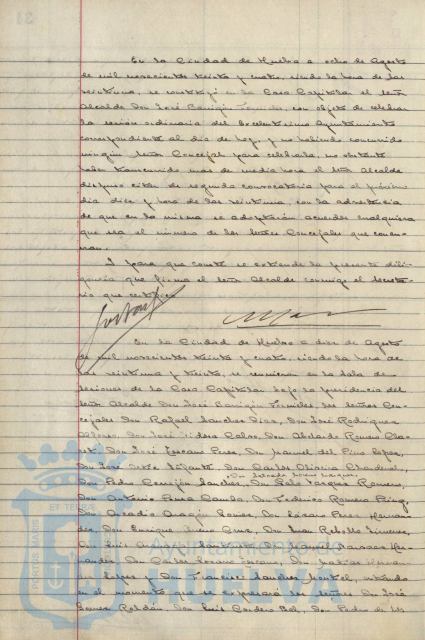 En la Ciudad de Huelva a ocho de Agosto
de mil novecientos treinta y cuatro, siendo la hora de las
veintiuna, se constituyó en la Casa Capitular el Señor
Alcalde Don José Barrigón, con objeto de celebrar
la sesión ordinaria del Excelentísimo Ayuntamiento
correspondiente al día de hoy, y no habiendo concurrido
ningún Señor Concejal para celebrarla, no obstante
haber transcurrido mas de media hora el Señor Alcalde
dispuso citar de segunda convocatoria para el próximo
día diez y hora de las veintiuna, con la advertencia
de que en la misma se adoptarán acuerdos cualquiera
que sea el número de los Señores Concejales que concu-
rran.
Y para que conste se extiende la presente dili-
gencia que firma el Señor Alcalde conmigo el Secreta-
rio que certifico.
En la Ciudad de Huelva a diez de Agosto
de mil novecientos treinta y cuatro, siendo la hora de
las veintiuna y treinta, se reunieron en la Sala de
Sesiones de la Casa Capitular bajo la presidencia del
Señor Alcalde Don José Barrigón, los Señores Con-
cejales Don Rafael Sanchez Diaz, Don José Rodriguez
Alfonso, Don José Isidro Don Abelardo Romero
Don José Don Manuel del Pino Lopez,
Don José Don Carlos Oliveira
Don Pedro Cerrejón Sanchez, Don Vazquez Romero,
Don Antonio Don Federico Romero
Don Arcadio Aragón Gomez, Don Perez Hernan-
dez, Don Enrique Cruz, Don Juan Rebollo Jimenez,
Don Luis Don Manuel Navarro Her-
nandez, Don Carlos Don Matias Hernan-
dez Lopez y Don Francisco Sanchez estando
en el momento que se expresará los Señores Don José
Gomez Roldán, Don Luis Cordero Bel, Don Pedro de los
PORTUS MARIS ET TERRAE
Ayuntamiento de
HUELVA